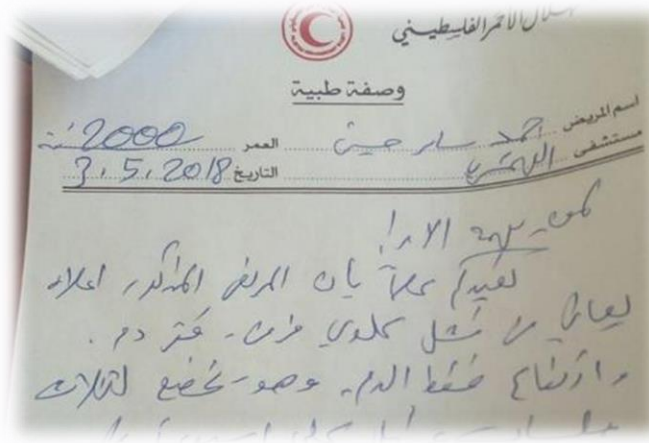 الهلال الأحمر الفلسطيني
وصفة طبية
اسم المريض احمد سامر حسين العمر 2000 سنة
مستشفى الهمشري التاريخ 3.5.2018
لمن يهمه الامر!
نفيدكم علماً بان المريض المذكور اعلاه
يعاني من فشل كلوي مزمن - فقر دم.
وارتفاع ضغط الدم. وهو يخضع لثلاث